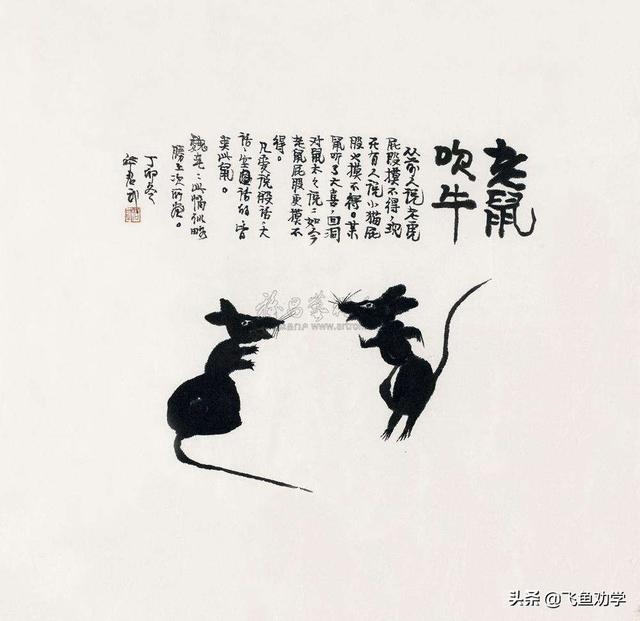 老鼠
吹牛
从前人说老虎
屁股摸不得，现
在有人说小猫屁
股也摸不得。某
鼠听了大喜，回洞
对鼠太太说：如今
老鼠屁股更摸不
得。
凡爱说假话、大
话、空话的，皆
类此鼠。
此幅似略
胜上次所画。
丁卯冬
www.artron
头条 @飞鱼劝学